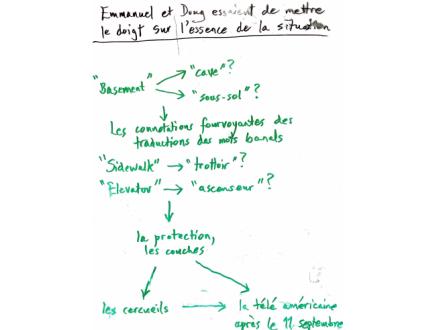 Emmanuel et Doug essaient de mettre
le doigt sur l'essence de la situation
"Basement" "cave"?
"sous-sol"?
Les connotations fourvoyantes des
traductions des mots banals
"Sidewalk" → "trottoir"?
"Elevator" → "ascenseur"?
la protection,
les couches
les cercueils → la télé américaine
après le 11 septembre